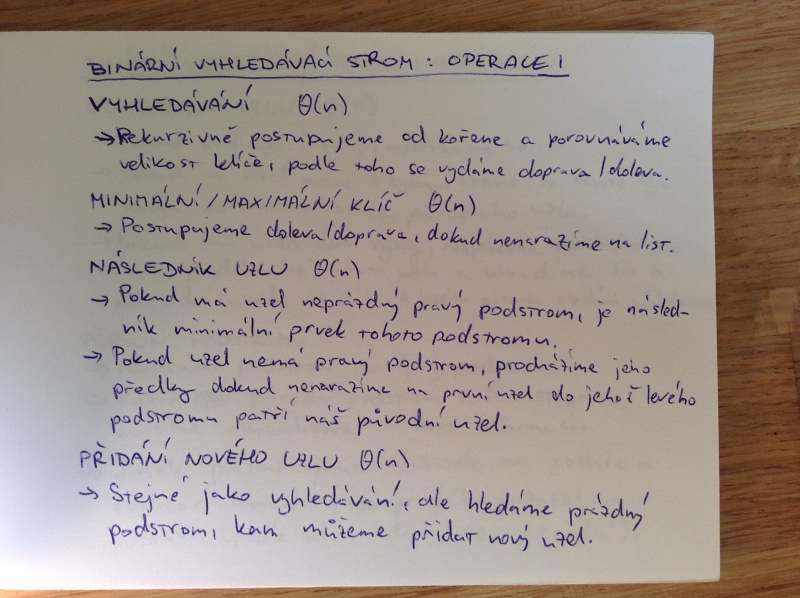 BINÁRNÍ VYHLEDÁVACÍ STROM: OPERACE I
VYHLEDÁVÁNÍ Θ(n)
→ Rekurzivně postupujeme od kořene a porovnáváme
velikost klíče, podle toho se vydáme doprava/doleva.
MINIMÁLNÍ/MAXIMÁLNÍ KLÍČ Θ(n)
→ Postupujeme doleva/doprava, dokud nenarazíme na list.
NÁSLEDNÍK UZLU Θ(n)
→ Pokud má uzel neprázdný pravý podstrom, je násled-
ník minimální prvek tohoto podstromu.
→ Pokud uzel nemá pravý podstrom, procházíme jeho
předky dokud nenarazíme na první uzel do jehož levého
podstromu patří náš původní uzel.
PŘIDÁNÍ NOVÉHO UZLU Θ(n)
→ Stejné jako vyhledávání, ale hledáme prázdný
podstrom, kam můžeme přidat nový uzel.